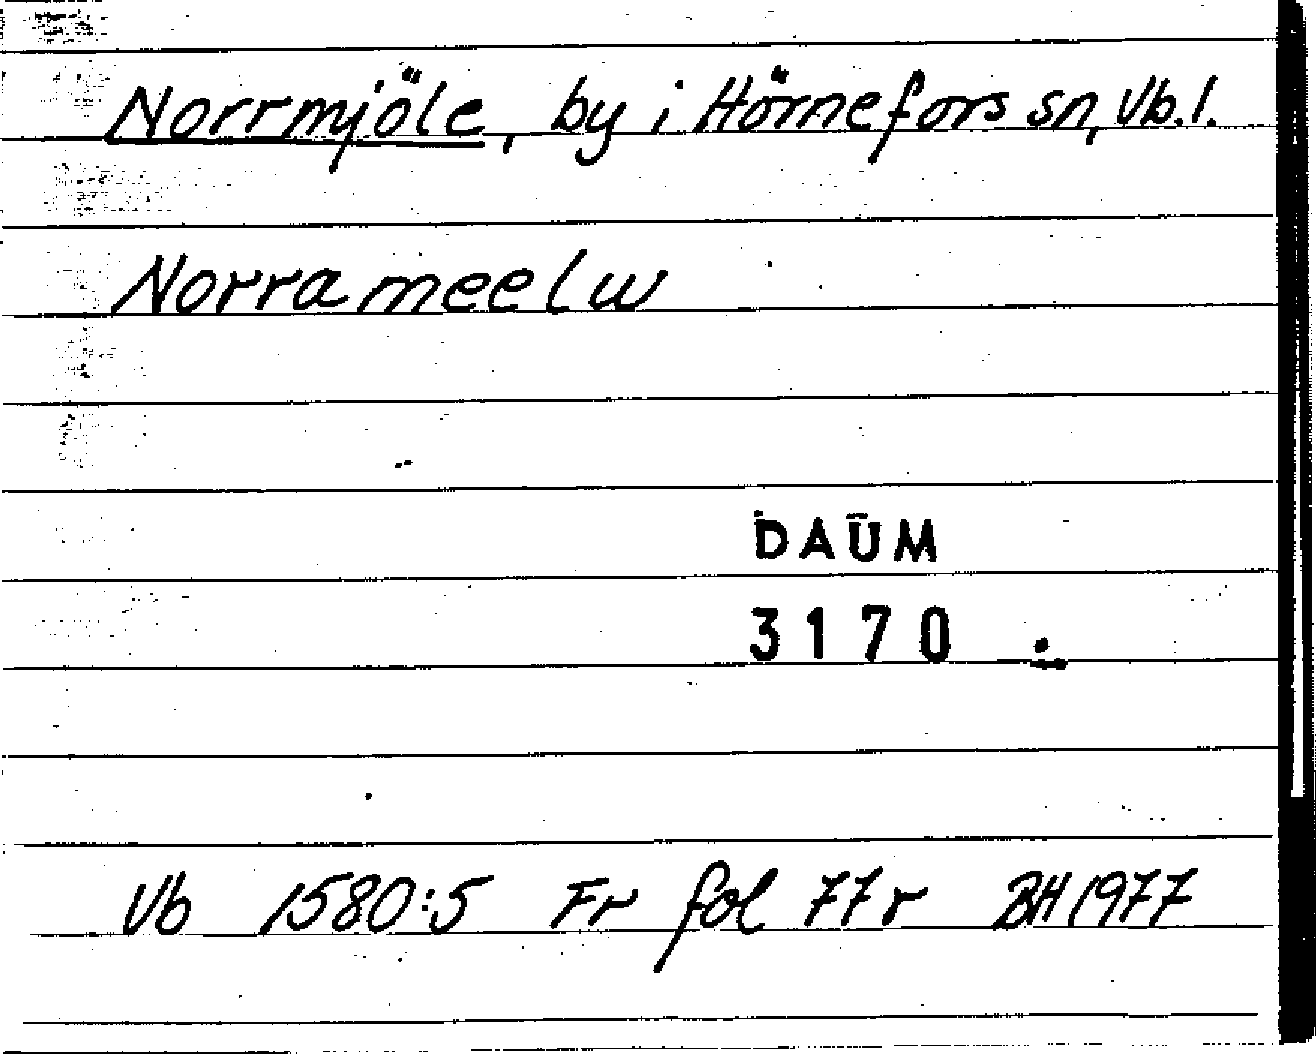 Norrmjöle, by i Hörnefors sn, Vb.l.
Norrameelw
DAUM
3170
Vb 1580:5 Fr fol 77r BH 1977